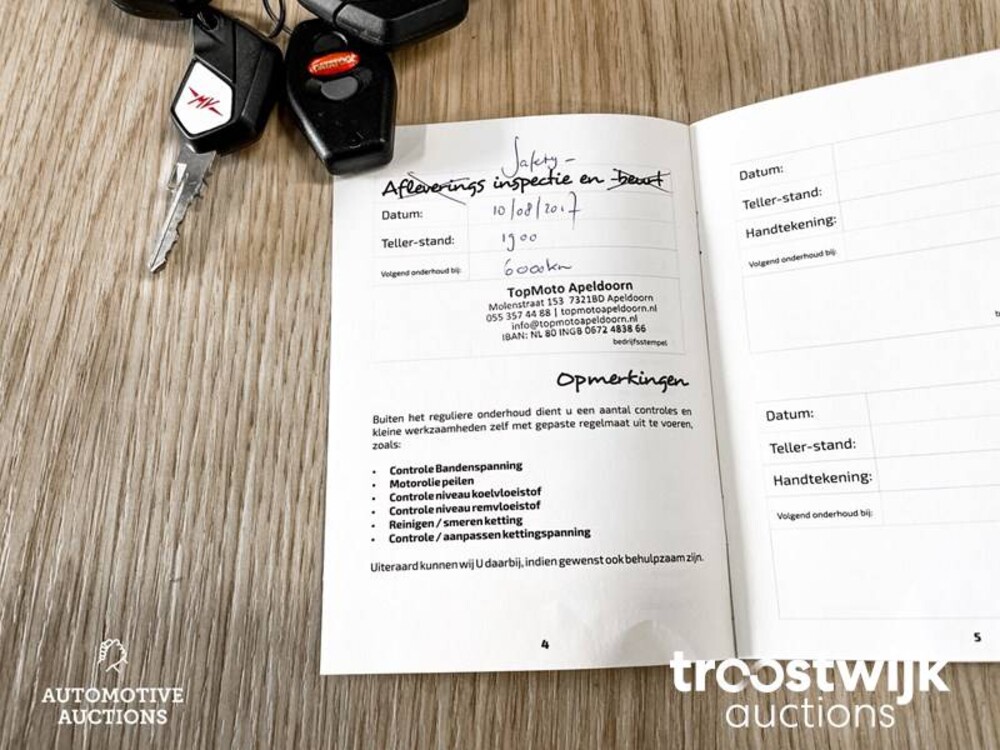 MV
DATATOOL
Safety -
Afleverings inspectie en beurt
Datum: 10/08/2017
Teller-stand: 1900
Volgend onderhoud bij: 6000km
TopMoto Apeldoorn
Molenstraat 153 7321BD Apeldoorn
055 357 44 88 | topmotoapeldoorn.nl
info@topmotoapeldoorn.nl
IBAN: NL 80 INGB 0672 4838 66
bedrijfsstempel
Opmerkingen
Buiten het reguliere onderhoud dient u een aantal controles en
kleine werkzaamheden zelf met gepaste regelmaat uit te voeren,
zoals:
• Controle Bandenspanning
• Motorolie peilen
• Controle niveau koelvloeistof
• Controle niveau remvloeistof
• Reinigen / smeren ketting
• Controle / aanpassen kettingspanning
Uiteraard kunnen wij U daarbij, indien gewenst ook behulpzaam zijn.
4
Datum:
Teller-stand:
Handtekening:
Volgend onderhoud bij:
Datum:
Teller-stand:
Handtekening:
Volgend onderhoud bij:
5
AUTOMOTIVE
AUCTIONS
troostwijk
auctions